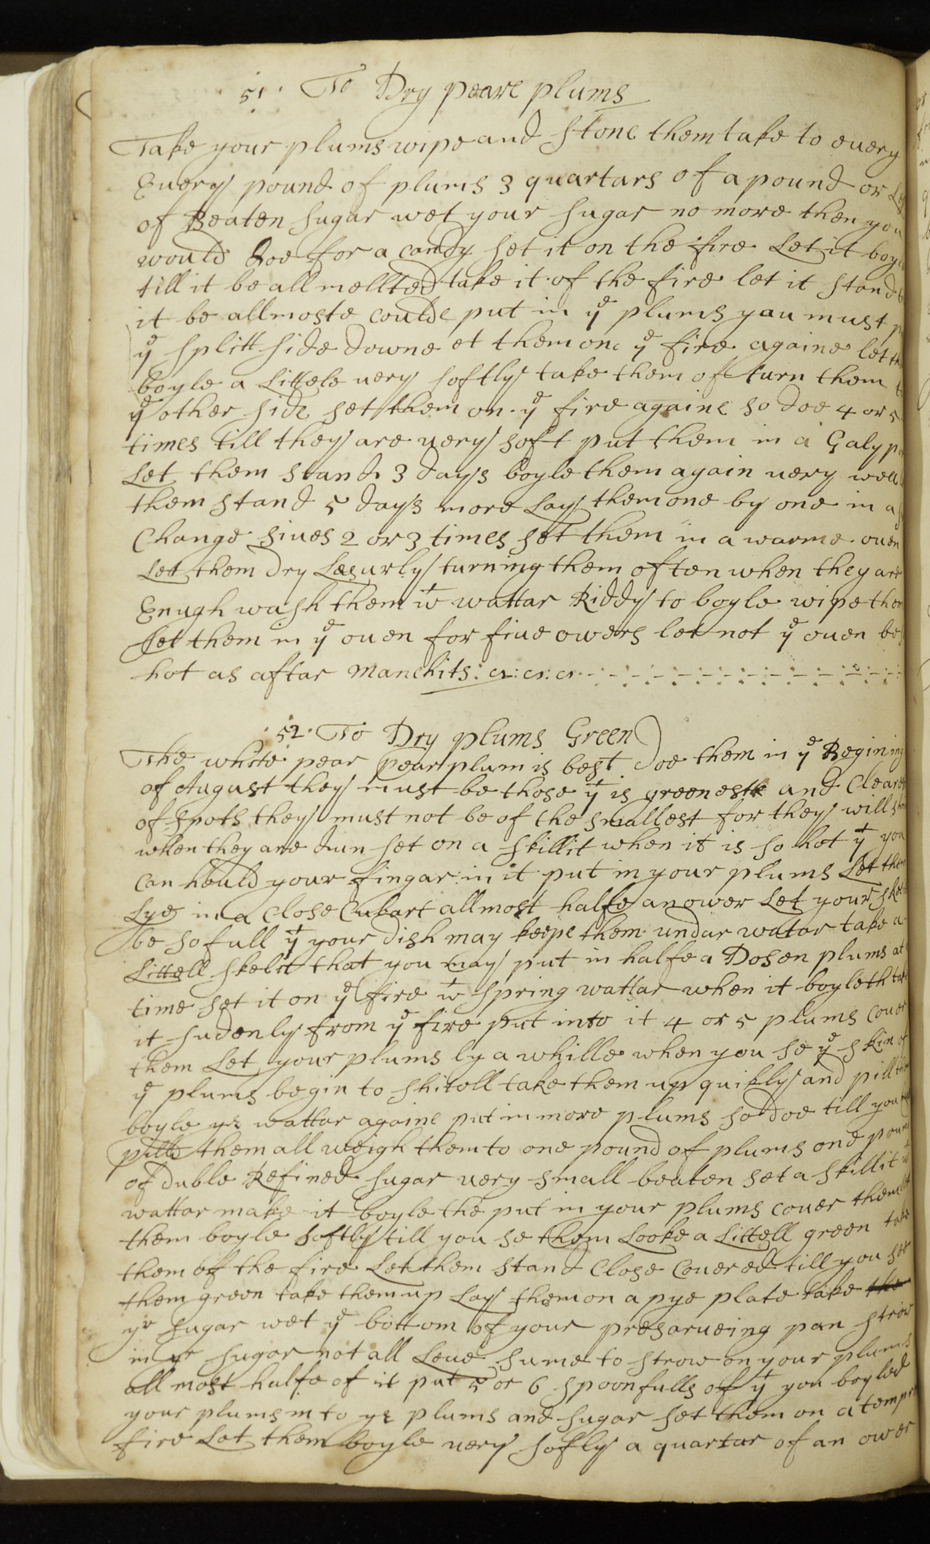 51. To Dry peare plums
Take your plums wipe and stone them take to euery
Euery pound of plums 3 quartars of a pound or
of Beaten sugar wet your sugar no more then you
would Doe for a candy set it on the fire Let it boyl
till it be all mellted take it of the fire let it stand
it be allmoste coulde put in yͤ plums you must
yͤ splitt side downe et them one yͤ fire againe let
boyle a Littele uery softly take them of turn them
yͤ other side set them on yͤ fire againe so doe 4 or 5
times till they are uery soft put them in a Galy
Let them stand 3 days boyle them again uery well
them stand 5 days more Lay them one by one in a
Change siues 2 or 3 times set them in a warme ouen
Let them Dry Lesurly turning them often when they are
Enugh wash them wͭ wattar Riddy to boyle wipe them
set them in yͤ ouen for fiue owers let not yͤ ouen be
hot as aftar manchits: cr: cr: cr
52. To Dry plums Green
The white pear pear plum is best Doe them in yͤ Begining
of August they must be those yͭ is greenest and Cleare
of spots they must not be of the smallest for they will
when they are dun set on a skillit when it is so hot yͭ you
can hould your fingar in it put in your plums Let them
Lye in a Close Cubart allmost halfe an ower Let your
be so full yͭ your dish may keepe them undar watar take a
Littell skelit that you may put in halfe a Dosen plums at
time set it on yͤ fire wͭ spring wattar when it boyleth
it sudenly from yͤ fire put into it 4 or 5 plums couer
them Let your plums ly a whille when you se yͤ skin of
yͤ plums begin to shitoll take them up quikly and pill
boyle yr wattar againe put in more plums so doe till you
pille them all weigh them to one pound of plums one pound
of duble Refined sugar uery small beaten set a skillit
wattar make it boyle the put in your plums couer them
them boyle softly till you se them Looke a Littell green take
them of the fire Let them stand Close Couered till you see
them green take them up Lay them on a pye plate take
yr sugar wet yͤ bottom of your presarueing pan strow
in yr sugar not all Leue sume to strow on your plums
all most halfe of it put 5 or 6 spoonfulls of yͭ you boyled
your plums in to yr plums and sugar set them on a
fire Let them boyle uery softly a quartar of an ower